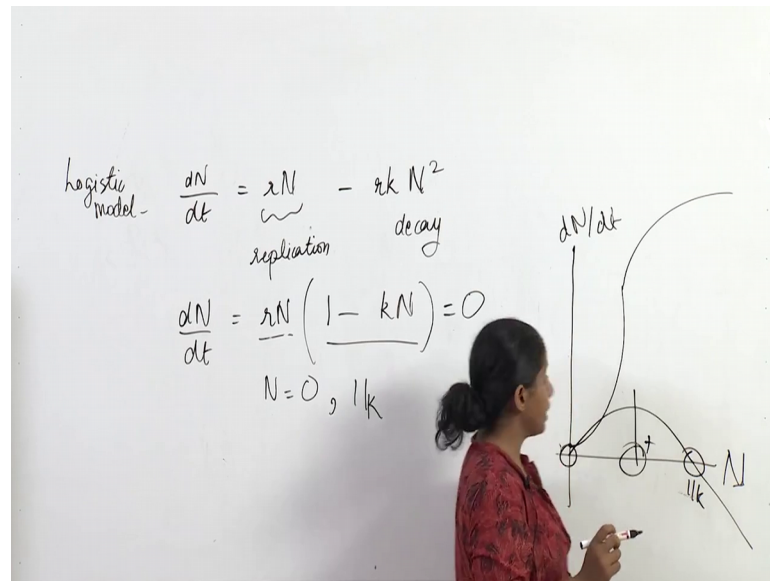 Logistic model - dN/dt = rN - rkN²
replication decay
dN/dt = rN (1 - kN) = 0
N = 0, 1/k
dN/dt
+
N
1/k